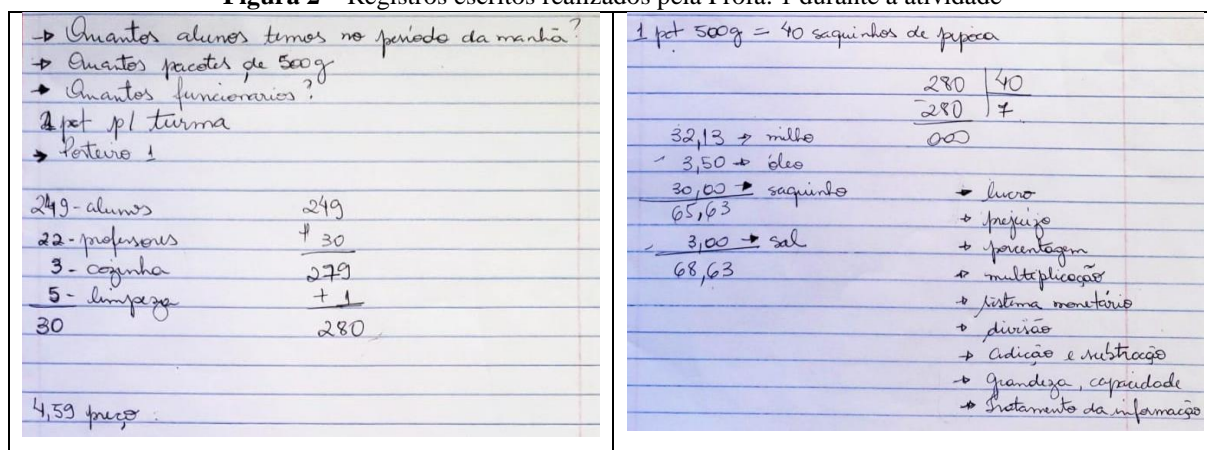 Figura 2 – Registros escritos realizados pela Profa. 1 durante a atividade
→ Quantos alunos temos no período da manhã?
→ Quantos pacotes de 500g
→ Quantos funcionarios?
1 pct p/ turma
→ Porteiro 1
249 - alunos
22 - professores
3 - cozinha
5 - limpeza
30
249
+ 30
279
+ 1
280
4,59 preço
1 pct 500g = 40 saquinhos de pipoca
280 | 40
-280 | 7
000
32,13 → milho
3,50 → óleo
30,00 → saquinho
65,63
3,00 → sal
68,63
→ lucro
→ prejuizo
→ porcentagem
→ multiplicação
→ sistema monetário
→ divisão
→ adição e subtração
→ grandeza, capacidade
→ Tratamento da informação